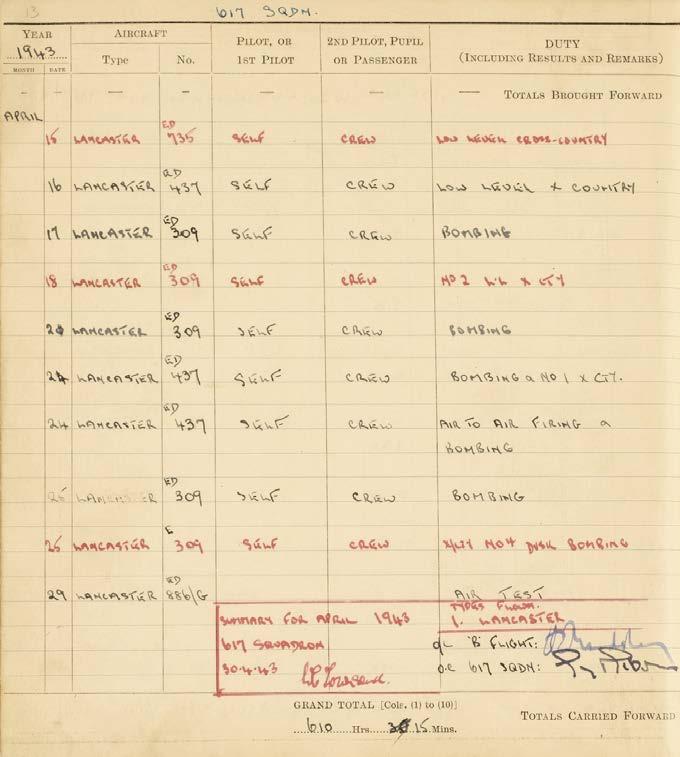 13
617 SQDN.
YEAR AIRCRAFT PILOT, OR 2ND PILOT, PUPIL DUTY
1943 Type No. 1ST PILOT OR PASSENGER (INCLUDING RESULTS AND REMARKS)
MONTH DATE
— — — — — — TOTALS BROUGHT FORWARD
APRIL
15 LANCASTER ED 735 SELF CREW LOW LEVEL CROSS-COUNTRY
16 LANCASTER ED 437 SELF CREW LOW LEVEL X COUNTRY
17 LANCASTER ED 309 SELF CREW BOMBING
18 LANCASTER ED 309 SELF CREW NO 2 L.L X CTY
LANCASTER ED 309 SELF CREW BOMBING
LANCASTER ED 437 SELF CREW BOMBING & NO 1 X CTY.
24 LANCASTER ED 437 SELF CREW AIR TO AIR FIRING &
BOMBING
LANCASTER ED 309 SELF CREW BOMBING
25 LANCASTER E 309 SELF CREW X/CTY NO 4 DUSK BOMBING
29 LANCASTER ED 886/G AIR TEST
SUMMARY FOR APRIL 1943 TYPES FLOWN.
1. LANCASTER
617 SQUADRON O/C 'B' FLIGHT:
30.4.43 O.C 617 SQDN:
GRAND TOTAL [Cols. (1) to (10)]
610 Hrs. 15 Mins. TOTALS CARRIED FORWARD